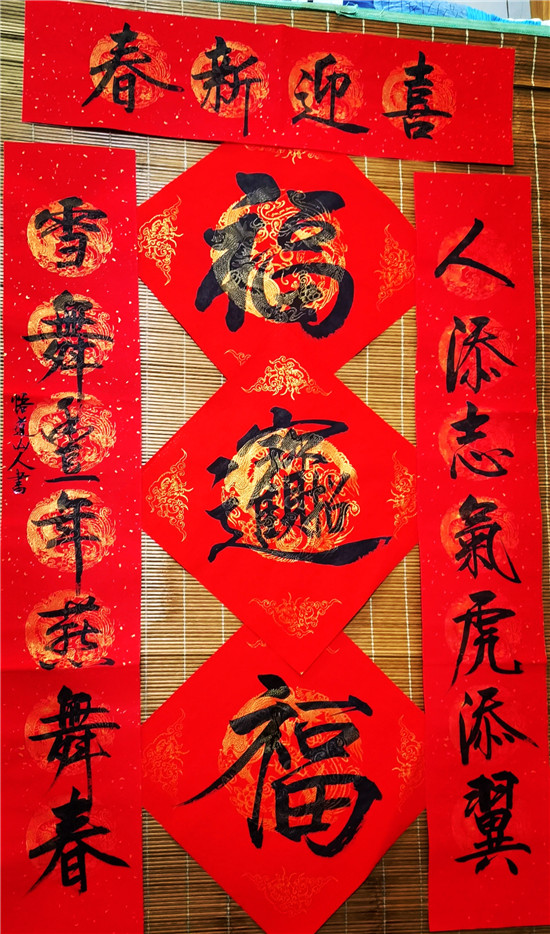 喜迎新春
人添志氣虎添翼
雪舞豐年燕舞春
山人書
福
招財進寶
福